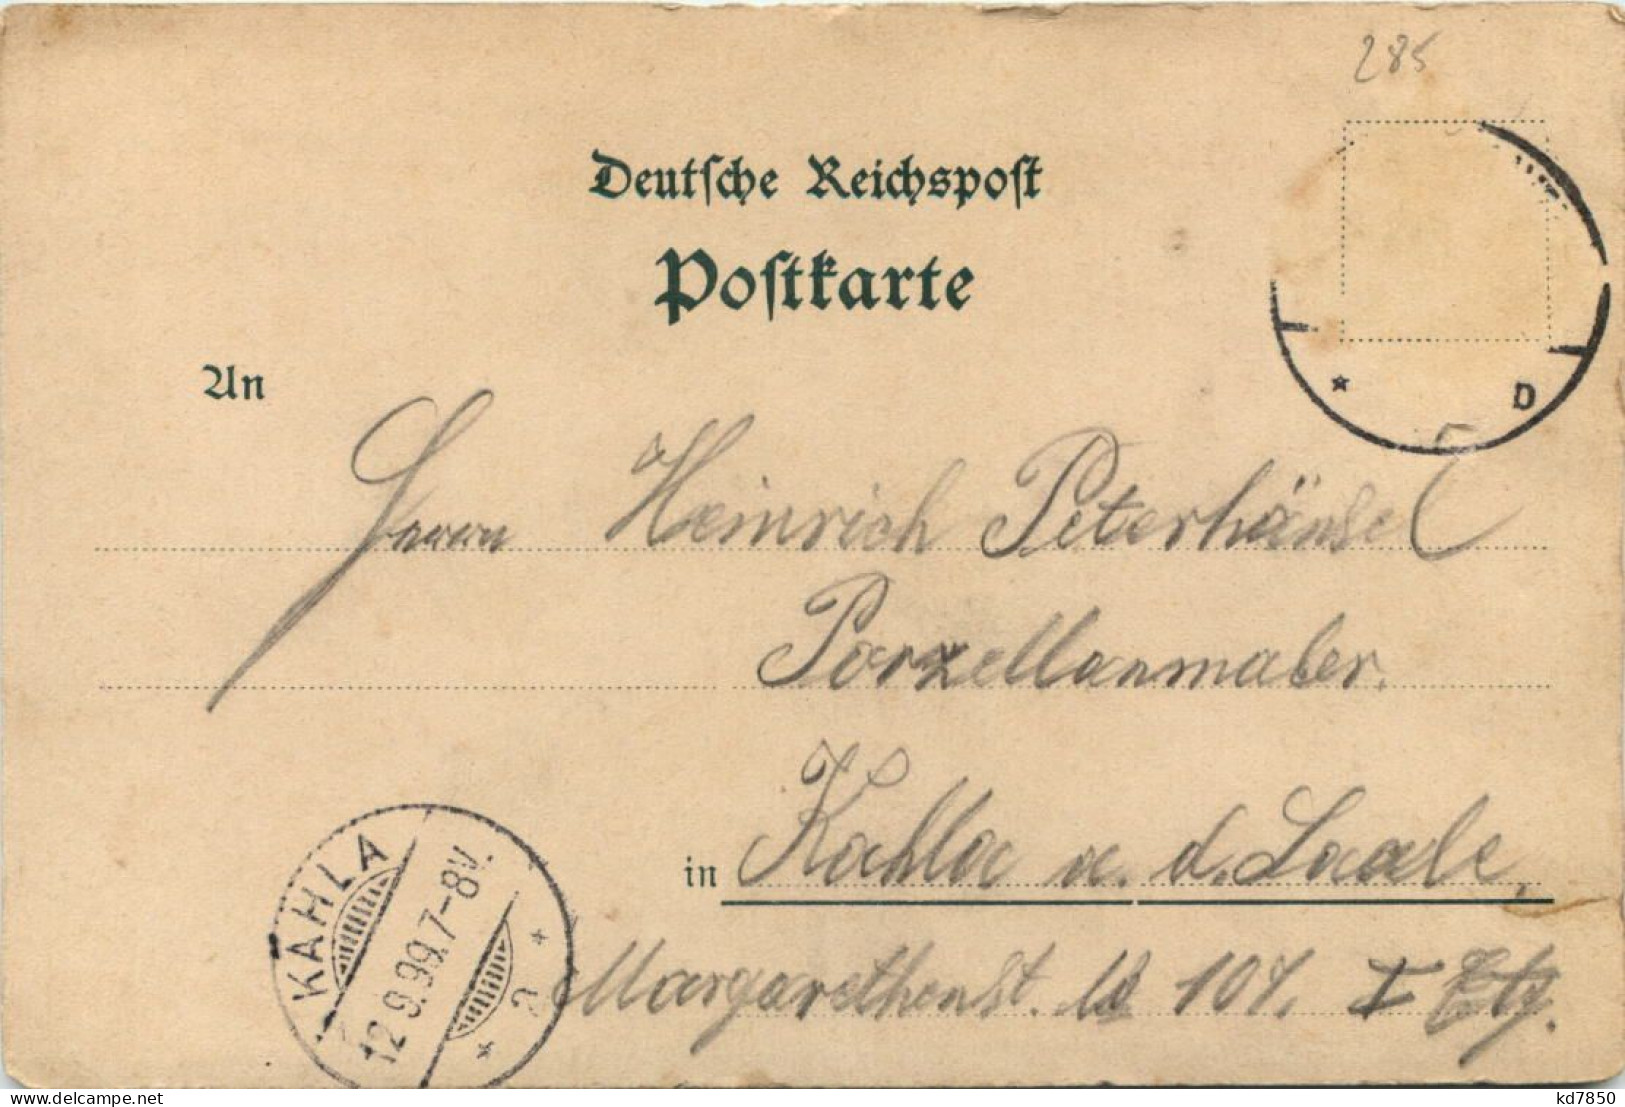 285
Deutsche Reichspost
Postkarte
An
D
Herrn Heinrich Peterhänsel
Porzellanmaler.
in Kahla a. d. Saale,
Margarethenst. No 104. I Etg.
KAHLA
12.9.99.7-8V.
* a *
delcampe.net
kd7850